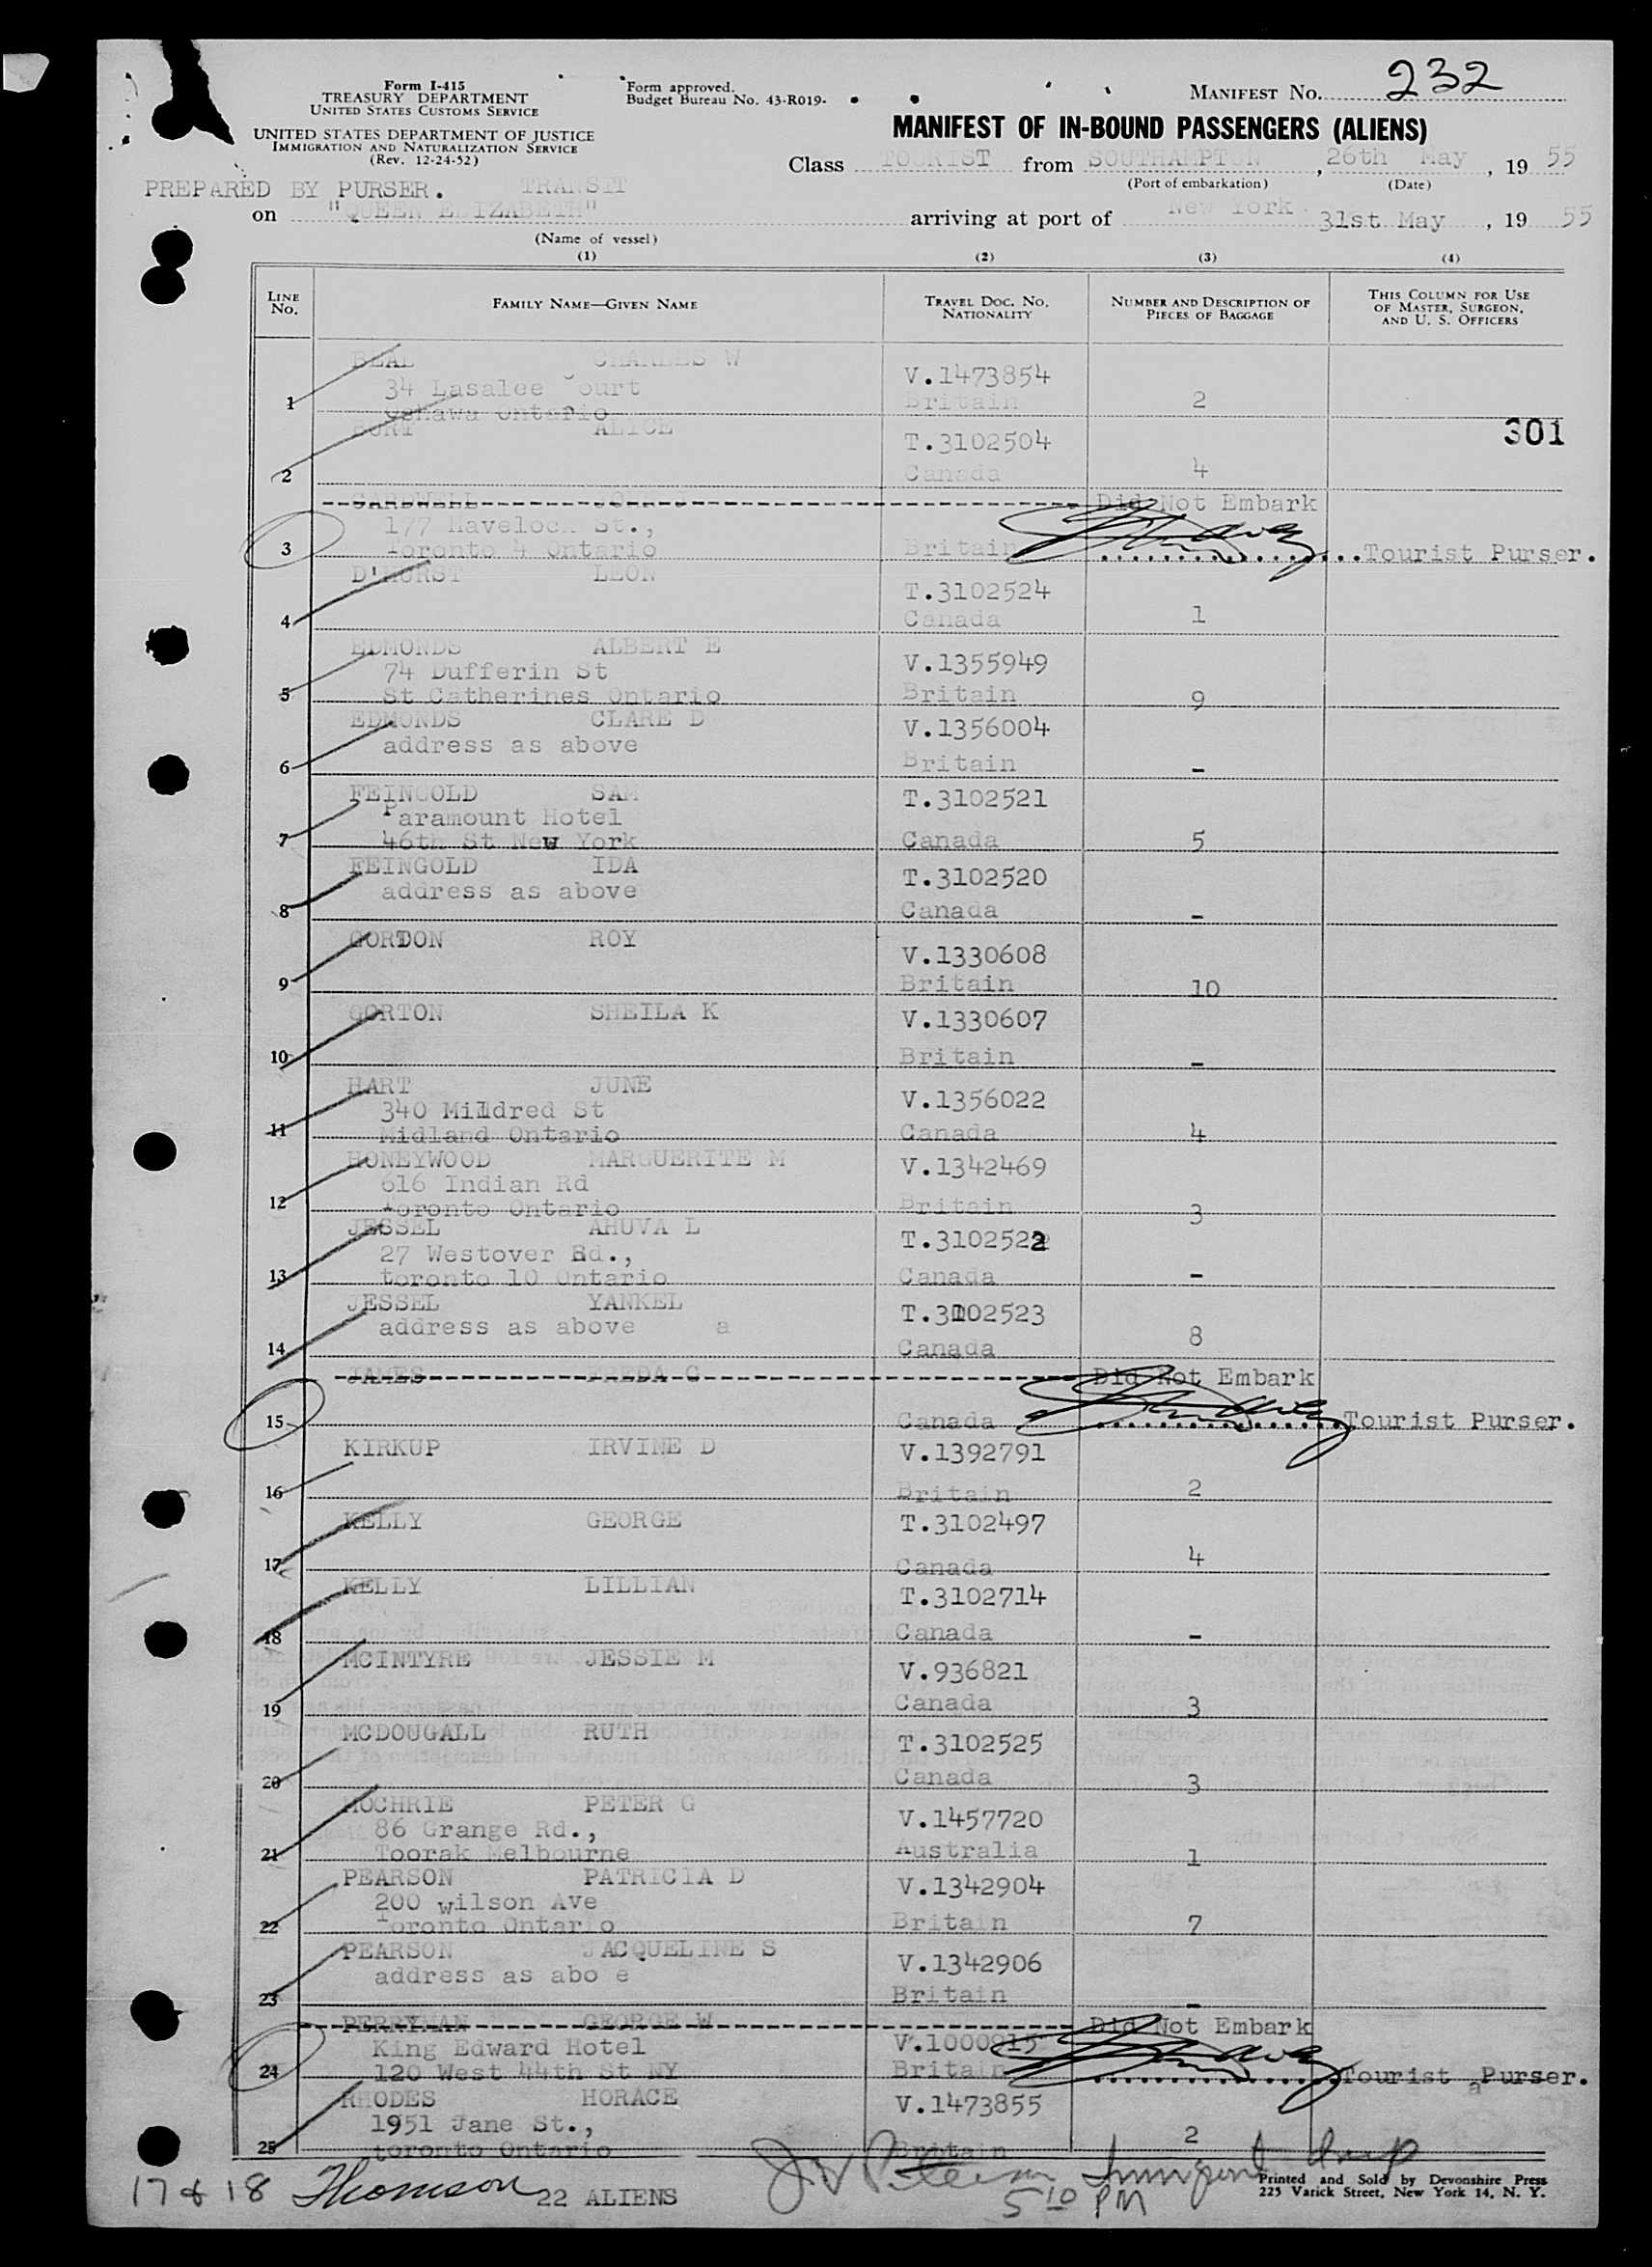 Form I-415
TREASURY DEPARTMENT
UNITED STATES CUSTOMS SERVICE
UNITED STATES DEPARTMENT OF JUSTICE
IMMIGRATION AND NATURALIZATION SERVICE
(Rev. 12-24-52)
Form approved.
Budget Bureau No. 43-R019-
MANIFEST NO. 232
MANIFEST OF IN-BOUND PASSENGERS (ALIENS)
Class TOURIST from SOUTHAMPTON, 26th May, 19 55
(Port of embarkation) (Date)
PREPARED BY PURSER. TRANSIT
on "QUEEN ELIZABETH" arriving at port of New York 31st May, 19 55
(Name of vessel)
(1) (2) (3) (4)
LINE NO. FAMILY NAME—GIVEN NAME TRAVEL DOC. NO. NATIONALITY NUMBER AND DESCRIPTION OF PIECES OF BAGGAGE THIS COLUMN FOR USE OF MASTER, SURGEON, AND U. S. OFFICERS
BEAL CHARLES W V.1473854
34 Lasalee ourt
1 Oshawa Ontario Britain 2
301
BURT ALICE T.3102504
2 Canada 4
CARDWELL JOHN J Did Not Embark
177 Havelock St.,
3 Toronto 4 Ontario Britain Tourist Purser.
D'HORST LEON T.3102524
4 Canada 1
EDMONDS ALBERT E V.1355949
74 Dufferin St
5 St Catherines Ontario Britain 9
EDMONDS CLARE D V.1356004
address as above
6 Britain -
FEINGOLD SAM T.3102521
Paramount Hotel
7 46th St New York Canada 5
FEINGOLD IDA T.3102520
address as above
8 Canada -
GORTON ROY V.1330608
9 Britain 10
GORTON SHEILA K V.1330607
10 Britain -
HART JUNE V.1356022
340 Mildred St
11 Midland Ontario Canada 4
HONEYWOOD MARGUERITE M V.1342469
616 Indian Rd
12 toronto Ontario Britain 3
JESSEL AHUVA L T.3102522
27 Westover Rd.,
13 toronto 10 Ontario Canada -
JESSEL YANKEL T.3102523
address as above a
14 Canada 8
JAMES FREDA G Did Not Embark
15 Canada Tourist Purser.
KIRKUP IRVINE D V.1392791
16 Britain 2
KELLY GEORGE T.3102497
17 Canada 4
KELLY LILLIAN T.3102714
18 Canada -
MCINTYRE JESSIE M V.936821
19 Canada 3
MCDOUGALL RUTH T.3102525
20 Canada 3
MOCHRIE PETER G V.1457720
86 Grange Rd.,
21 Toorak Melbourne Australia 1
PEARSON PATRICIA D V.1342904
200 wilson Ave
22 Toronto Ontario Britain 7
PEARSON JACQUELINE S V.1342906
address as abo e
23 Britain -
PERRYMAN GEORGE W Did Not Embark
King Edward Hotel V.1000815
24 120 West 44th St NY Britain Tourist a Purser.
RHODES HORACE V.1473855
1951 Jane St.,
25 toronto Ontario Britain 2
17 & 18 Thomson 22 ALIENS
5 10 PM
Printed and Sold by Devonshire Press
225 Varick Street, New York 14, N. Y.